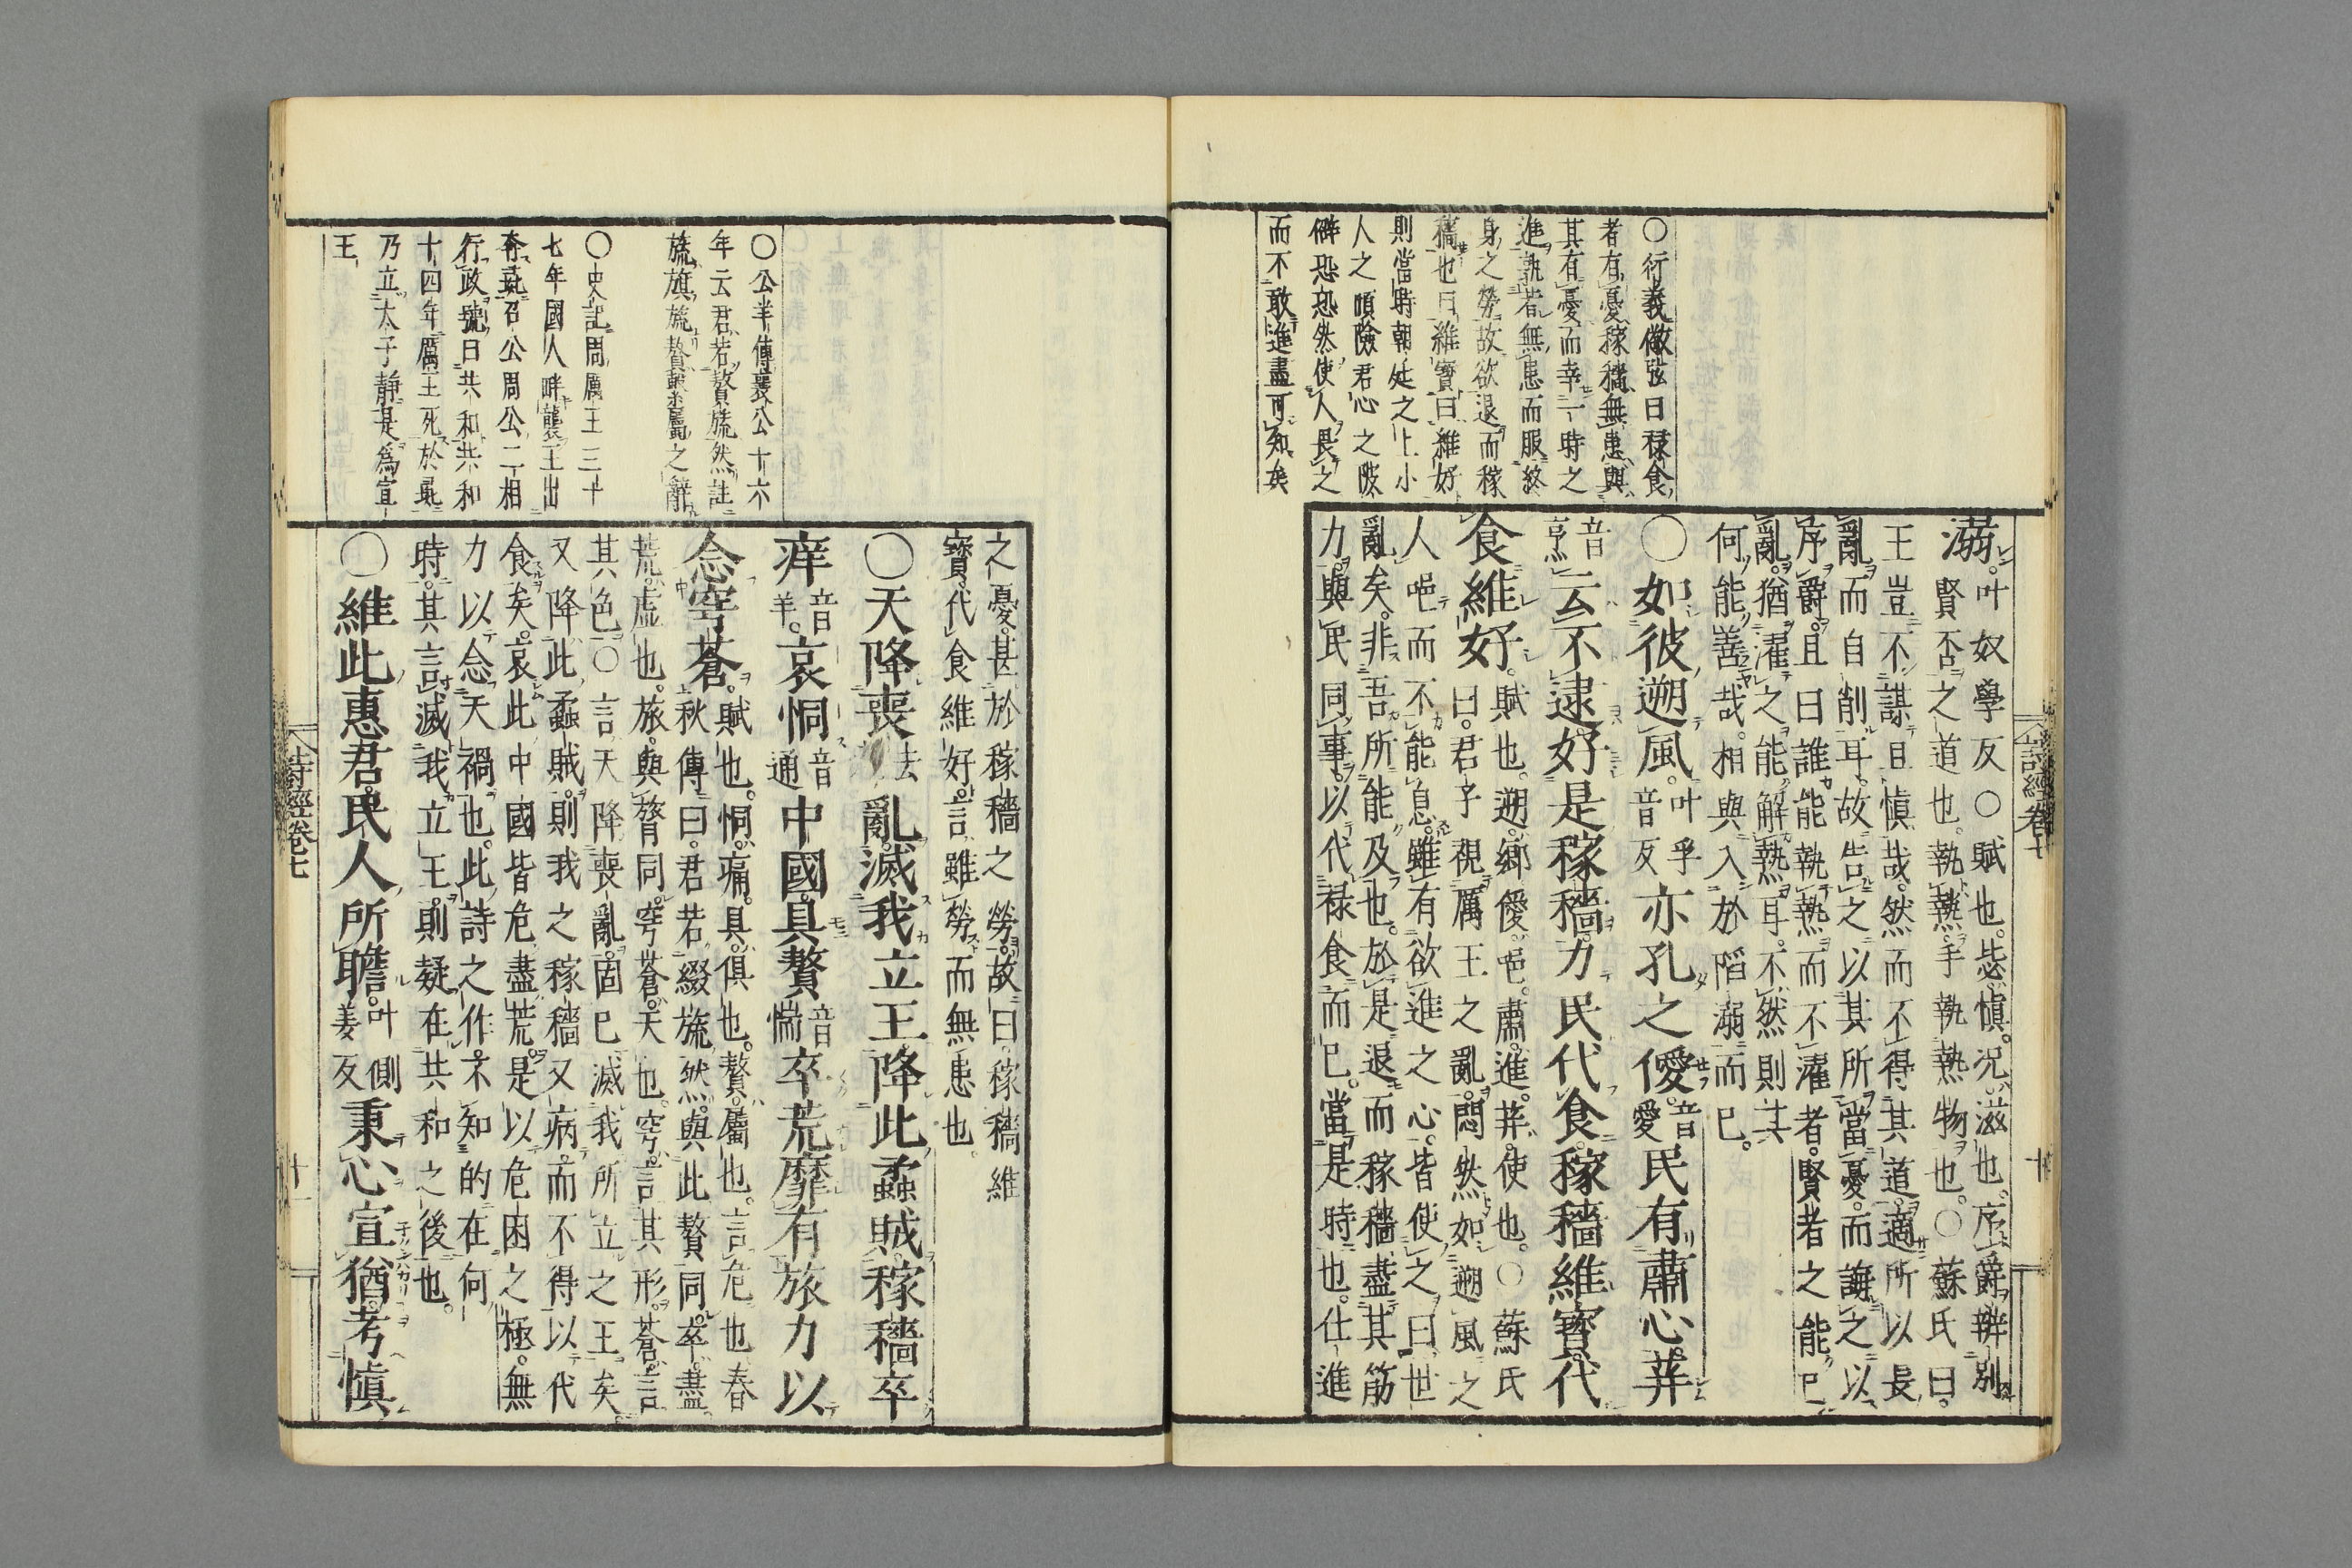 〇衍義徽弦曰祿食
者有憂稼穡無患與
其有憂而幸一時之
進孰若無患而服終
身之勞故欲退而稼
穡也曰維寶曰維好
則當時朝廷之上小
人之傾險君心之陂
僻恐恐然使人畏之
而不敢進盡可知矣
溺。叶奴學反〇賦也。毖愼。況滋也。序爵辨別
賢否之道也。執熱。手執熱物也。〇蘇氏曰。
王豈不謀且愼哉。然而不得其道。適所以長
亂而自削耳。故告之以其所當憂。而誨之以
序爵。且曰誰能執熱而不濯者。賢者之能已
亂。猶濯之能解熱耳。不然則其
何能善哉。相與入於陷溺而已。
〇如彼遡風。叶孚音反亦孔之僾。音愛民有肅心。荓
音烹云不逮好是稼穡。力民代食。稼穡維寶。代
食維好。賦也。遡。鄉僾。唈。肅。進。荓。使也。〇蘇氏
曰。君子視厲王之亂。悶然如遡風之
人唈而不能息。雖有欲進之心。皆使之曰世
亂矣。非吾所能及也。於是退而稼穡盡其筋
力。與民同事。以代祿食而已。當是時也。仕進
詩經卷七
十
〇公羊傳襄公十六
年云君若贅旒然註
旒旗旒贅繫屬之辭
〇史記周厲王三十
七年國人畔襲王出
奔彘召公周公二相
行政號曰共和共和
十四年厲王死於彘
乃立太子靜是爲宣
王
之憂。甚於稼穡之勞。故曰稼穡維
寶。代食維好。言雖勞而無患也。
〇天降喪亂。滅我立王。降此蟊賊。稼穡卒
痒音羊。哀恫音通中國。具贅音惴卒荒。靡有旅力。以
念穹蒼。賦也。恫。痛。具。俱也。贅。屬也。言危也。春
秋傳曰。君若綴旒然。與此贅同。卒。盡。
荒。虛也。旅。與膂同。穹蒼。天也。穹。言其形。蒼。言
其色〇言天降喪亂。固已滅我所立之王矣。
又降此蟊賊。則我之稼穡又病。而不得以代
食矣。哀此中國皆危盡荒。是以危困之極。無
力以念天禍也。此詩之作不知的在何
時。其言滅我立王。則疑在共和之後也。
〇維此惠君。民人所瞻。叶側姜反秉心宣猶。考愼
詩經卷七
十一